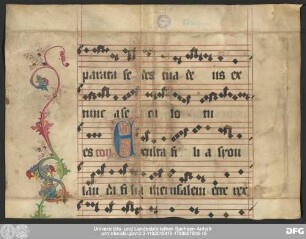 parata se des tua de us ex
tunc a se cu lo tu
es con Exulta fi li a syon
lau da fi li a iherusalem ecce rex
Universitäts- und Landesbibliothek Sachsen-Anhalt